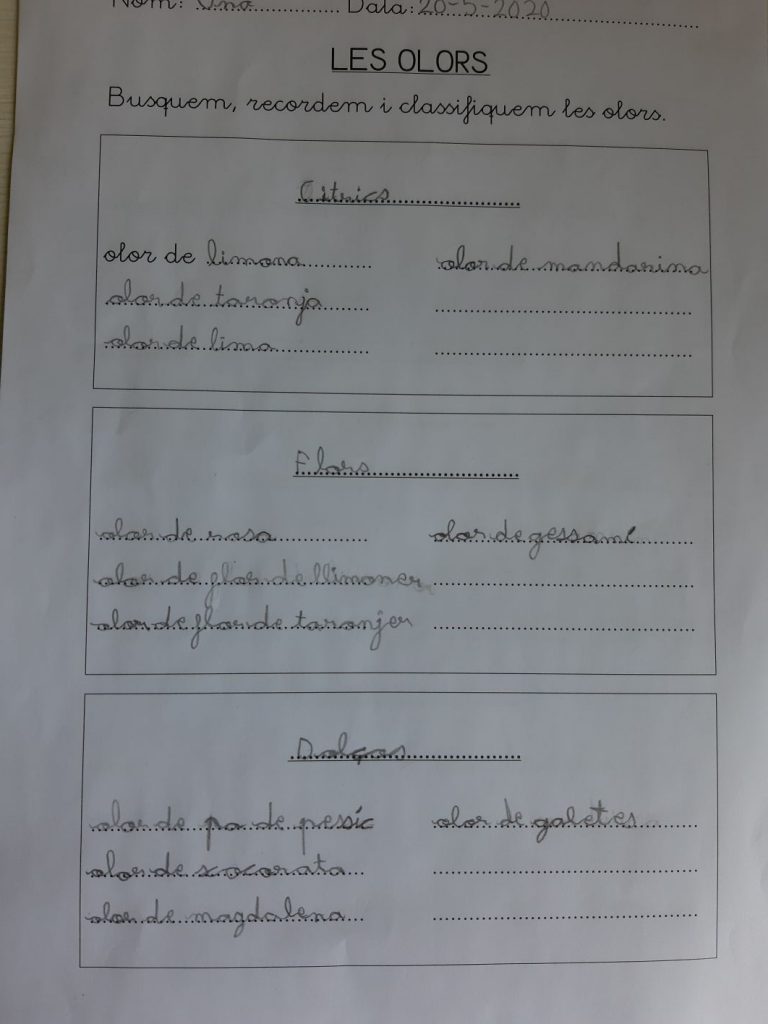 Nom: Ona Data: 20-5-2020
LES OLORS
Busquem, recordem i classifiquem les olors.
Cítrics
olor de limona olor de mandarina
olor de taronja
olor de lima
Flors
olor de rosa olor de gessamí
olor de flor de llimoner
olor de flor de taronjer
Dolços
olor de pa de pessic olor de galetes
olor de xocorata
olor de magdalena